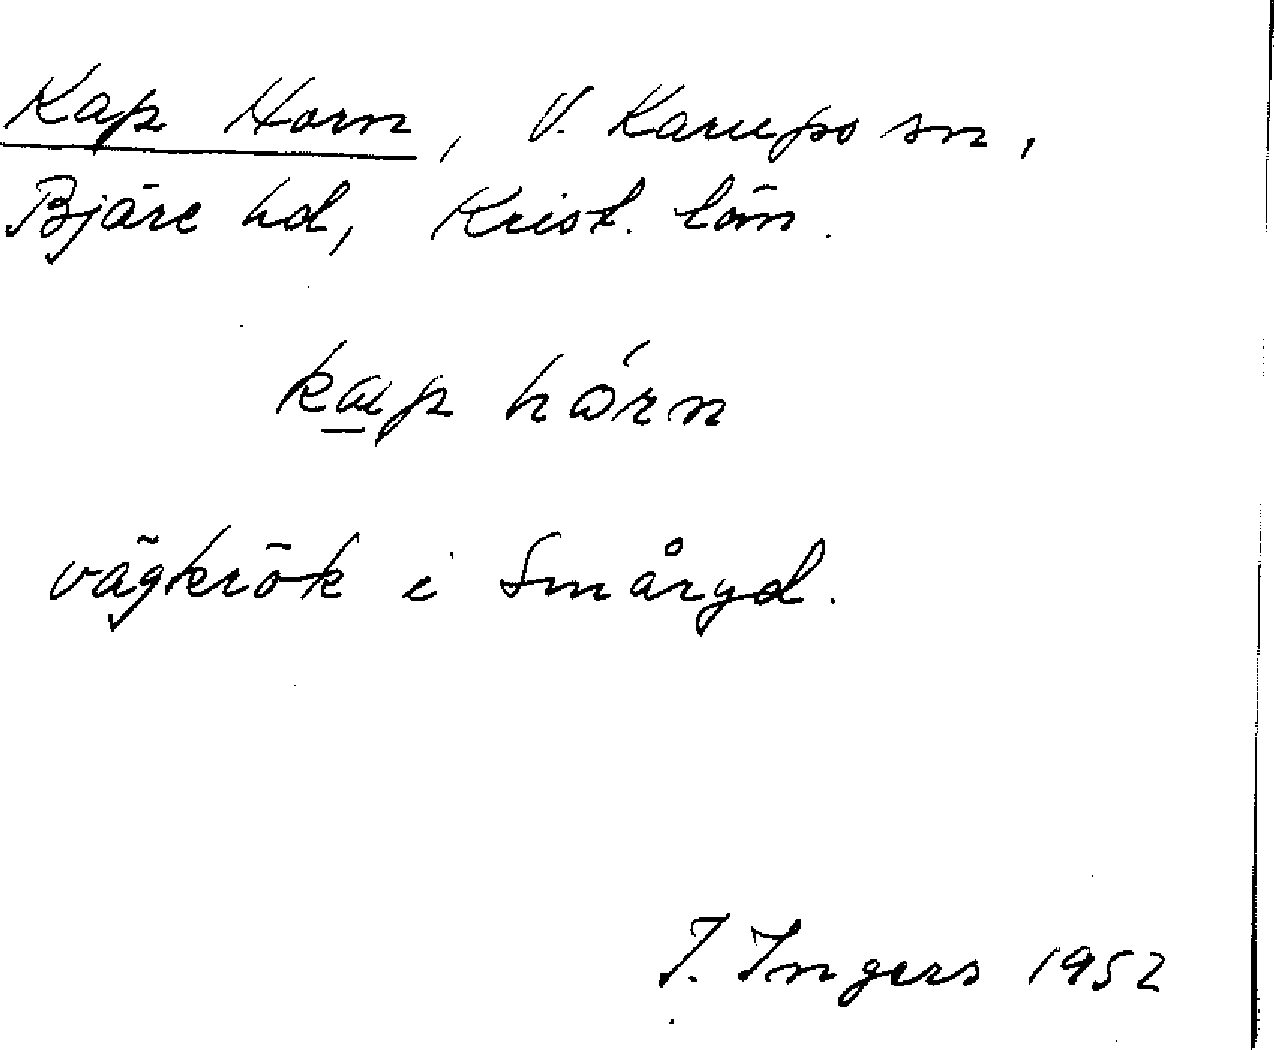 Kap Horn, V. Karups sn,
Bjäre hd, Krist. län.
kap hórn
vägkrök i Småryd.
I. Ingers 1952